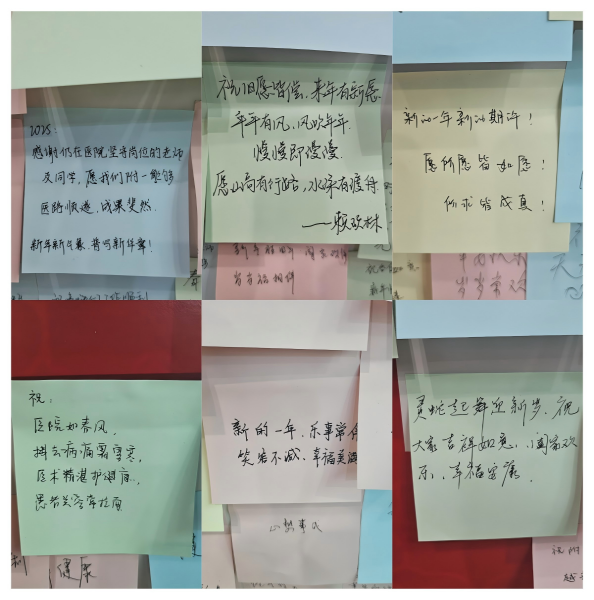 2025:
感谢仍在医院坚守岗位的老师
及同学，愿我们附一能够
医路顺遂，成果斐然.
新年新气象，谱写新华章！
祝旧愿皆偿，来年有新愿
年年有风，风吹年年.
慢慢即漫漫.
愿山高有行路，水深有渡舟
新的一年新的期许！
愿所愿皆如愿！
所求皆成真！
岁岁常欢
祝：
医院如春风，
抖去病痛霜雪寒，
医术精湛护健康，
患者笑容常拉存
健康
新的一年，乐事常伴
笑容不减，幸福美满
心想事成
灵蛇起舞迎新岁，祝
大家吉祥如意，阖家欢
乐，幸福安康.
祝附